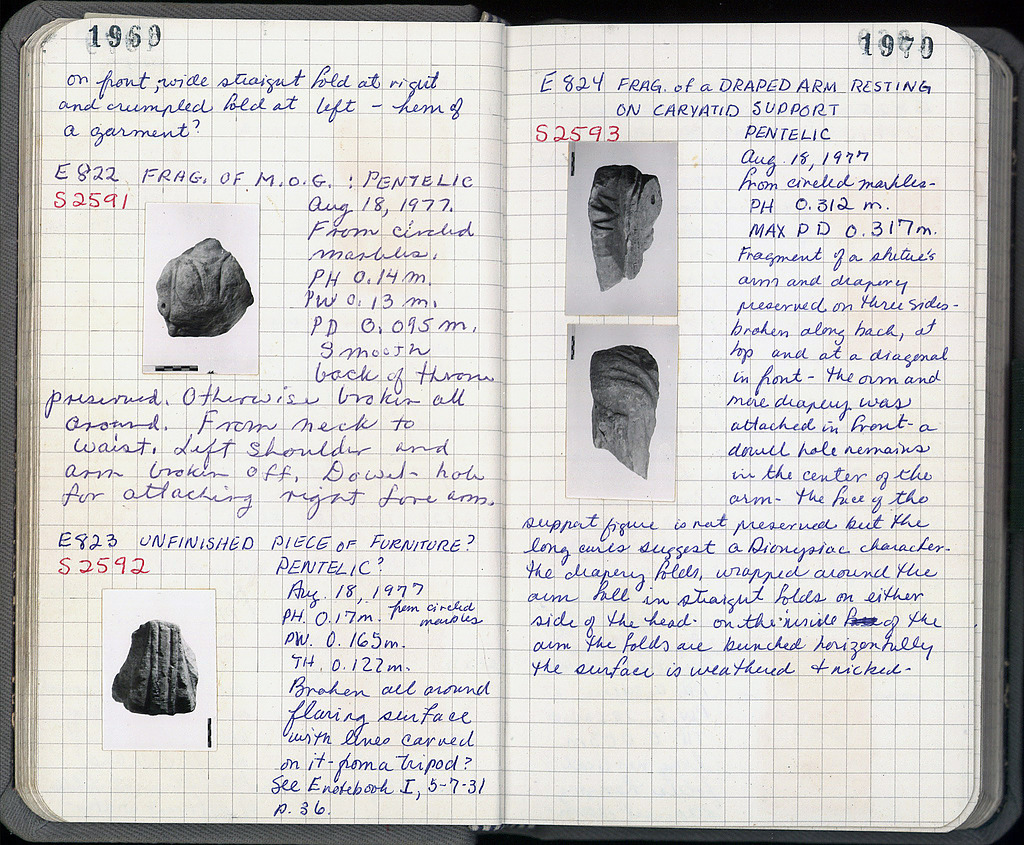 1969
on front, wide straight fold at right
and crumpled fold at left - hem of
a garment?
E 822 FRAG. OF M.O.G. : PENTELIC
S 2591
Aug 18, 1977.
From circled
marbles.
PH 0.14 m.
PW 0.13 m.
PD 0.095 m.
Smooth
back of throne
preserved. Otherwise broken all
around. From neck to
waist. Left shoulder and
arm broken off. Dowel-hole
for attaching right fore arm.
E823 UNFINISHED PIECE OF FURNITURE?
S 2592
PENTELIC?
Aug. 18, 1977
PH. 0.17m. from circled
marbles
PW. 0.165m.
TH. 0.122m.
Broken all around
flaring surface
with lines carved
on it - from a tripod?
See E notebook I, 5-7-31
p. 36.
1970
E 824 FRAG. of a DRAPED ARM RESTING
ON CARYATID SUPPORT
S 2593
PENTELIC
Aug 18, 1977
from circled marbles-
PH 0.312 m.
MAX PD 0.317m.
Fragment of a statue's
arm and drapery
preserved on three sides-
broken along back, at
top and at a diagonal
in front - the arm and
more drapery was
attached in front - a
dowel hole remains
in the center of the
arm - the face of the
support figure is not preserved but the
long curls suggest a Dionysiac character.
the drapery folds, wrapped around the
arm fall in straight folds on either
side of the head. on the inside of the
arm the folds are bunched horizontally
the surface is weathered + nicked-